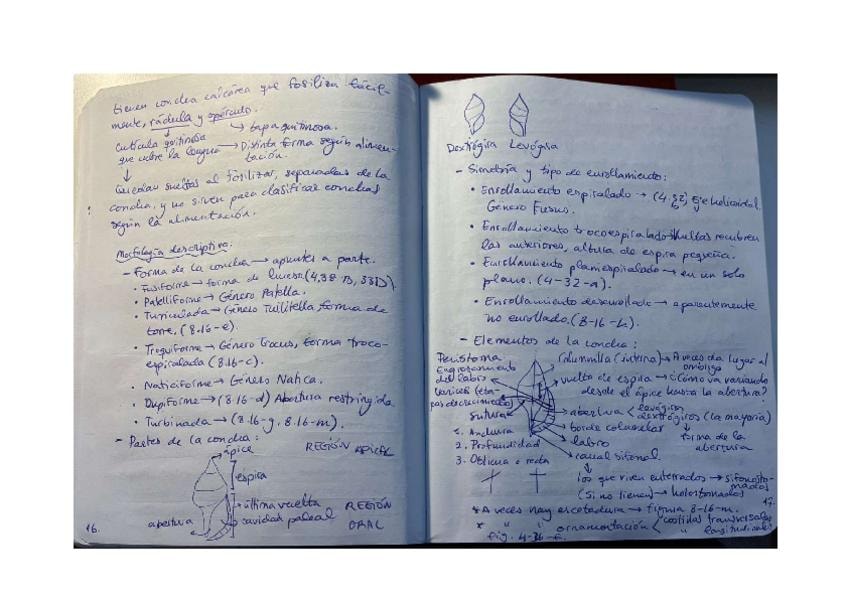 tienen concha calcárea que fosiliza fácil-
mente, rádula y opérculo.
→ tapa quitinosa.
Cutícula quitinosa
que cubre la lengua → Distinta forma según alimen-
tación.
↓
Quedan sueltas al fosilizar, separadas de la
concha, y no sirven para clasificar conchas
según la alimentación.
Morfología descriptiva:
- Forma de la concha → apuntes a parte.
• Fusiforme → forma de (4.38 B, 33D).
• Patelliforme → Género Patella.
• Turriculada → Género forma de
torre, (8.16-e).
• Troquiforme → Género Trocus, forma troco-
espiralada (8.16-c).
• Naticiforme → Género Natica.
• → (8.16-d) Abertura restringida
• Turbinada → (8.16-g, 8.16-m).
- Partes de la concha:
REGIÓN APICAL
ápice
espira
última vuelta
REGIÓN
ORAL
abertura
cavidad paleal
16.
Dextrógira Levógira
- Simetría y tipo de enrollamiento:
• Enrollamiento espiralado → (4.32) Eje helicoidal.
Género Fusus.
• Enrollamiento trocoespiralado → Vueltas recubren
las anteriores, altura de espira pequeña.
• Enrollamiento planiespiralado → en un solo
plano. (4-32-a).
• Enrollamiento desenrollado → aparentemente
no enrollado. (8-16-k).
- Elementos de la concha:
Peristoma:
Engrosamiento
del labro
varices (eta-
pas de crecimiento)
sutura
1. Anchura
2. Profundidad
3. Oblicua o recta
columnilla (interna) → A veces da lugar al
ombligo
vuelta de espira → ¿Cómo va variando
desde el ápice hasta la abertura?
abertura < levógiros
dextrógiros (la mayoría)
↓
forma de la
abertura
borde columelar
labro
canal sifonal
↓
los que viven enterrados → sifonosto-
mados
(Si no tienen) → holostomados
* A veces hay escotadura → figura 8-16-m.
* " " ornamentación < costillas transversales
" longitudinales
fig. 4-36-f.
17.